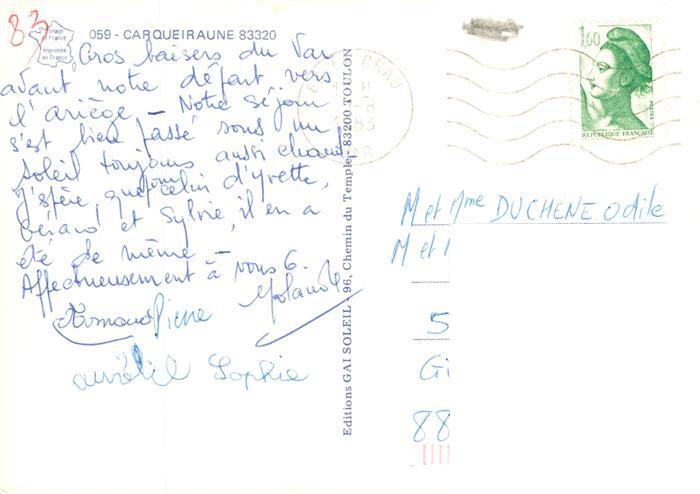 83
Image
en France
Imprimée
en France
059 - CARQUEIRAUNE 83320
Gros baisers du Var
avant notre départ vers
l'ariège - Notre séjour
s'est bien passé sous un
soleil toujours aussi chaud
J'espère, que celui d'yvette,
gérard et Sylvie, il en a
été de même -
Affectueusement à vous 6
Yolande
Armand Pierre
aurélie Sophie
Editions GAI SOLEIL - 96, Chemin du Temple - 83200 TOULON
CRAU
VAR
1,60
POSTES
REPUBLIQUE FRANÇAISE
M et Mme DUCHENE Odile
M et
5
Gi
88